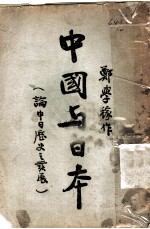 鄭學稼作
中國与日本
(論中日歷史之發展)